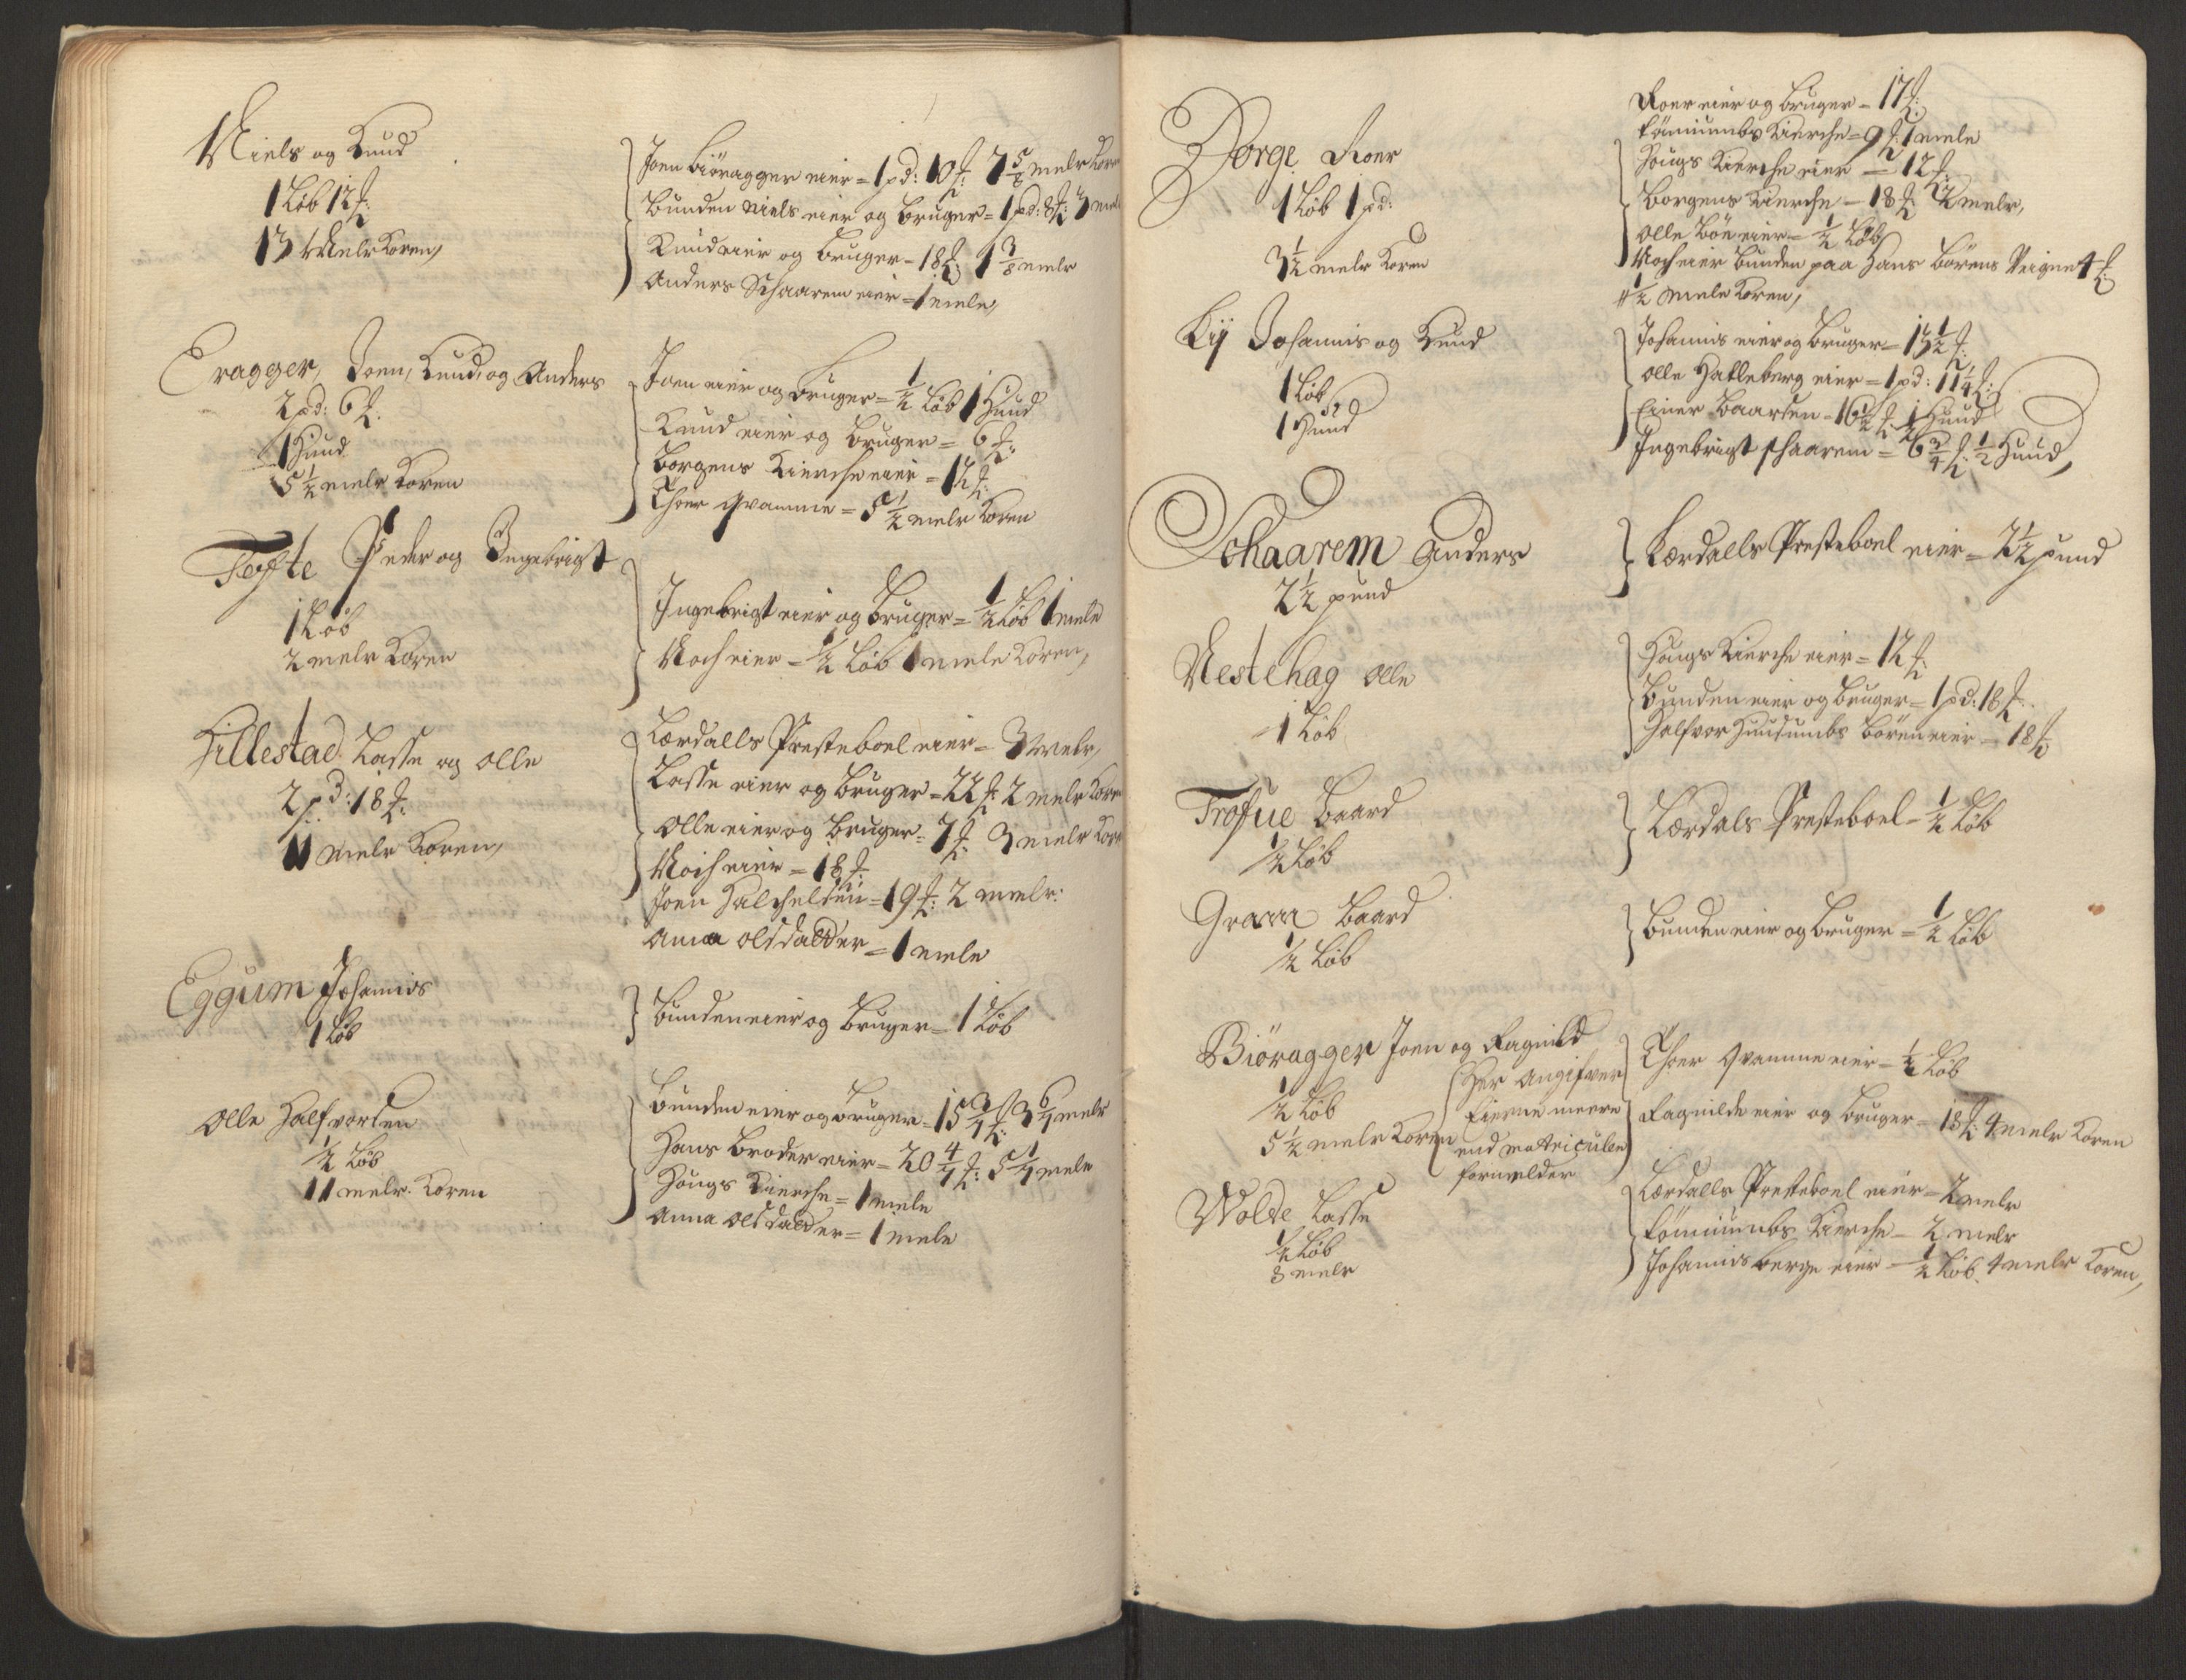 Niels og Knud
1 Løb 12 ℔:
13 Meler Koren,
Joen Biøragger eier = 1 pd: 10 ℔: 7 5/8 meler Koren
Bunden Niels eier og bruger = 1 pd: 8 ℔: 3 mel
Knud eier og bruger = 18 ℔: 1 3/8 meler
Anders Schaarem eier = 1 mele,
Eragger, Joen, Knud, og Anders
2 pd: 6 ℔:
1 Huud
5 1/2 meler Koren
Joen eier og bruger = 1/2 Løb 1 Huud
Knud eier og bruger = 6 ℔:
Borgens Kierche eier = 12 ℔:
Thoer Qvamme = 5 1/2 meler Koren
Tofte Peder og Ingebrigt
1 Løb
2 meler Koren
Ingebrigt eier og bruger = 1/2 Løb 1 mele
Noch eier = 1/2 Løb 1 mele Koren,
Hillestad Lasse og Olle
2 pd: 18 ℔:
11 meler Koren,
Lærdalls Presteboel eier = 3 meler,
Lasse eier og bruger = 22 ℔: 2 meler Koren
Olle eier og bruger = 7 ℔: 3 meler Kore
Noch eier = 18 ℔:
Joen = 19 ℔: 2 meler:
Anna Olsdatter = 1 mele
Eggum Johannis
1 Løb
Bunden eier og bruger = 1 Løb
Olle Halfvorsen
1/2 Løb
11 meler Koren
Bunden eier og bruger = 15 3/4 ℔: 3 6/7 meler
Hans Broder eier = 20 4/7 ℔: 5 1/7 mele
Hougs Kierche = 1 mele
Anna Olsdatter = 1 mele
Dorge Roer
1 Løb 1 pd:
3 1/2 meler Koren
Roer eier og bruger = 17 ℔:
Tøniumbs Kierche = 9 ℔: 1 mele
Hougs Kierche eier = 12 ℔:
Borgens Kierche = 18 ℔: 2 meler,
Olle Bøe eier = 1/2 Løb
Noch eier bunden paa Hans Børens Veigne 4 ℔:
1/2 mele Koren,
Lij Johannis og Knud
1 Løb
1 Huud
Johannis eier og bruger = 13 1/2 ℔:
Olle Hatleberg eier = 1 pd: 11 1/4 ℔:
Einer Baarsen = 16 1/2 ℔: 1/2 Huud
Ingebrigt Schaarem = 6 3/4 ℔: 1/2 Huud,
Schaarem Anders
2 1/2 pund
Lærdalls Presteboel eier = 2 1/2 pund
Nestehag Olle
1 Løb
Hougs Kierche eier = 12 ℔:
Bunden eier og bruger = 1 pd: 18 ℔:
Halfvor Huusumbs Børen eier = 18 ℔:
Trøfue Baard
1/2 Løb
Lærdals Presteboel = 1/2 Løb
Gram Baard
1/2 Løb
Bunden eier og bruger = 1/2 Løb
Biøragger Joen og Ragnild
1/2 Løb
5 1/2 meler Koren
Her angifver
Eierne meere
end matriculen
formelder
Thoer Qvamme eier = 1/2 Løb
Ragnilde eier og bruger = 18 ℔: 4 meler Koren
Wolde Lasse
1/2 Løb
8 meler
Lærdalls Presteboel eier = 2 meler
Tøniumbs Kierche = 2 meler
Johannis Berge eier = 1/2 Løb 4 meler Koren,